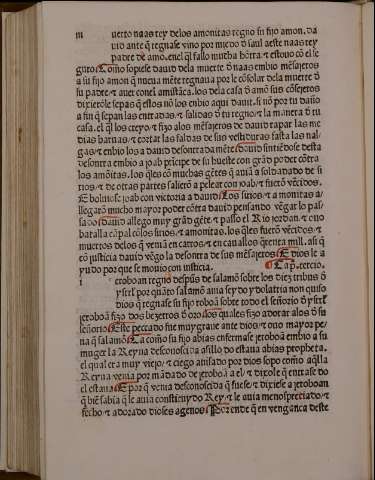 m uerto naas rey delos amonitas regno su fijo amon. da
uid ante q̃ regnase vino por miedo d̃ saul aeste naas rey
padre de amõ. enel q̃l fallo mucha hõrra. ⁊ estouo cõ el le
guro Como sopiese dauid dela muerte d̃ naas embio mẽsajeros
a su fijo amon q̃ nueua mẽte regnaua por le cõsolar dela muerte d̃
su padre ⁊ auer conel amistãca. los dela casa d̃ amõ sus cõsejeros
dixierõle sepas q̃ estos nõ los enbio aqui dauit. si nõ por tu daño
a fin q̃ sepan las entradas. ⁊ salidas d̃ tu regno ⁊ la manera d̃ tu
casa. el q̃l los creyo. ⁊ fizo alos mẽsajeros de dauid rapar las me
dias baruas. ⁊ cortar las faldas de sus vestiduras fasta las nal
gas ⁊ enbio los a dauid desonrrada mẽte Dauid sintiẽdose desta
desonrra embio a joab pricipe de su hueste con grãd poder cõtra
los amõitas. los q̃les cõ muchas gẽtes q̃ auiã a soldadado de si
rios ⁊ de otras partes salierõ a pelear con joab ⁊ fuerõ vẽcidos.
E boluiose joab con victoria a dauid Los sirios ⁊ a monitas a
llegarõ mucho mayor poder cõtra dauid pensando vẽgar lo pas
sado dauid allego muy grãd gẽte. ⁊ passo el Rio jordan ⁊ ouo
batalla cãpal cõlos sirios. ⁊ amonitas. los q̃les fuerõ vẽcidos. ⁊
muertos delos q̃ veniã en carros ⁊ en cauallos q̃renta mill. asi q̃
cõ justicia dauid vẽgo la desonrra de sus mẽsajeros E dios le a
yudo por que se mouio con iusticia. Cap. tercio.
i eroboan regno despũs de salamõ sobre los diez tribus d̃
ysrl por quãto salamõ auia seydo ydolatria non quiso
dios q̃ regnase su fijo roboã sobre todo el señorio d̃ ysrl
jeroboã fizo dos bezerros d̃ oro los quales fizo adorar alos d̃ su
señorio Este peccado fue muy graue ante dios ⁊ ouo mayor pe
na q̃ salamõ Ca como su fijo abias enfermase jeroboã embio a su
muger la Reyna desconoscida a sillo do estaua abias propheta.
el qual era muy viejo ⁊ ciego auisado por dios sopo como aq̃lla
Reyna venia por mãdado de jeroboã a el ⁊ dixole q̃ entrase do
el estaua E por q̃ venia desconoscida q̃ fuese ⁊ dixiese a jeroboan
q̃ biẽ sabia q̃ le auia constituydo Rey ⁊ le auia menospreciado. ⁊
fecho ⁊ adorado dioses agenos Por ende q̃ en venganca deste